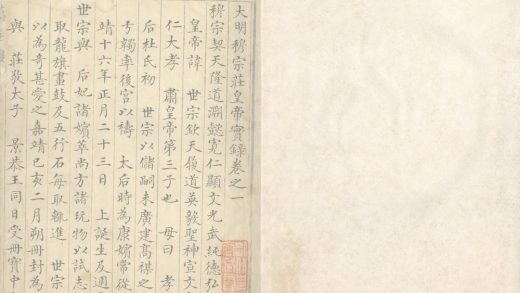 大明穆宗莊皇帝實錄卷之一
穆宗契天隆道淵懿寬仁顯文光武純德弘
皇帝諱 世宗欽天履道英毅聖神宣文
仁大孝 肅皇帝第三子也 母曰 孝
后杜氏初 世宗以儲嗣未廣建高禖之
弓韣率後宮以禱 太后時為康嬪常從
靖十六年正月二十三日 上誕生及週
世宗與 后妃諸嬪萃尚方諸玩物以試志
取龍旗畫鼓及五行石每取輒進 世宗
以為奇甚愛之嘉靖己亥二月朔冊封為
與 莊敬太子 景恭王同日受冊寶中